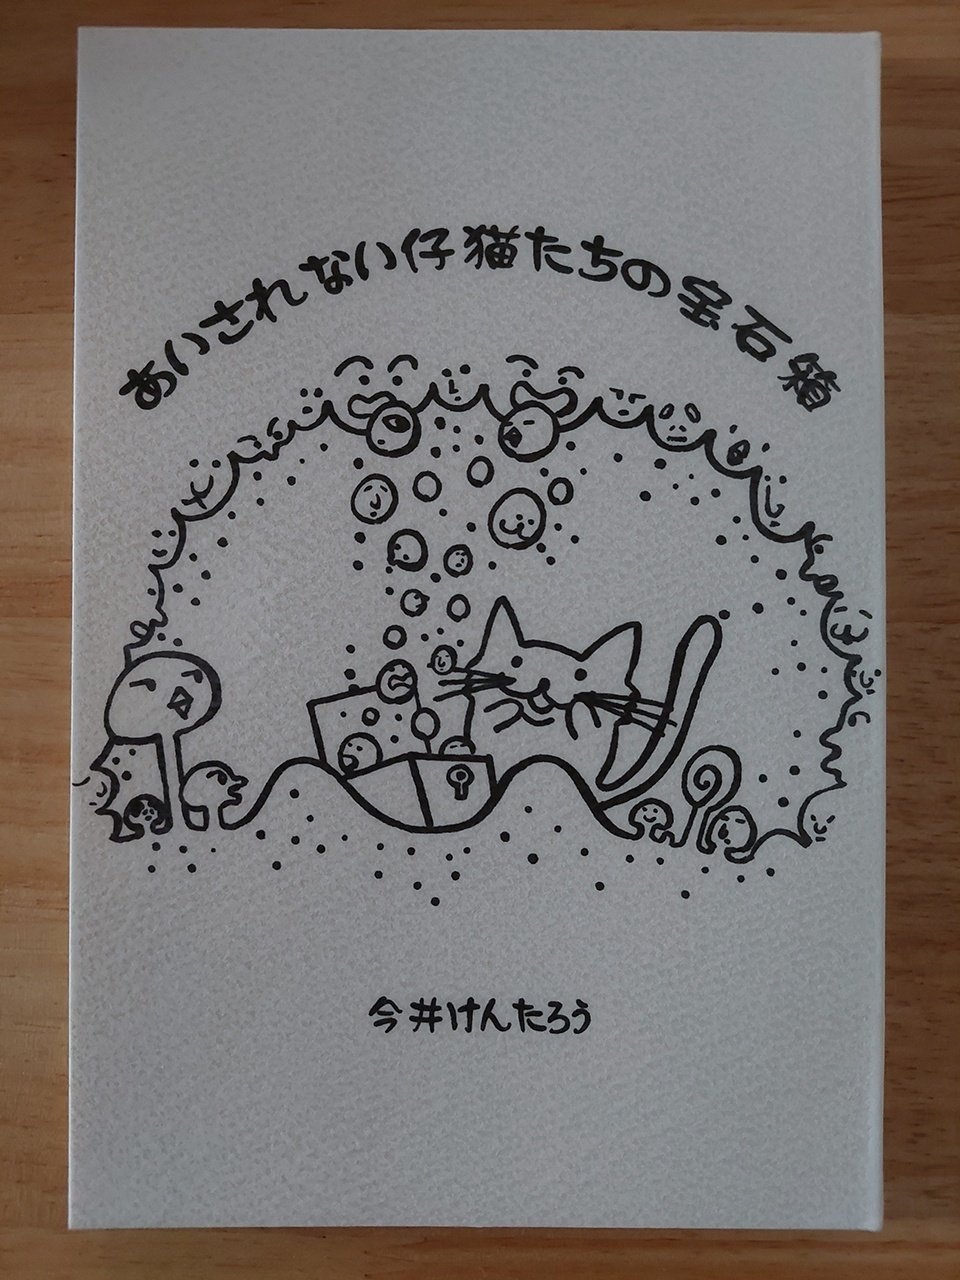 あいされない仔猫たちの宝石箱
今井けんたろう